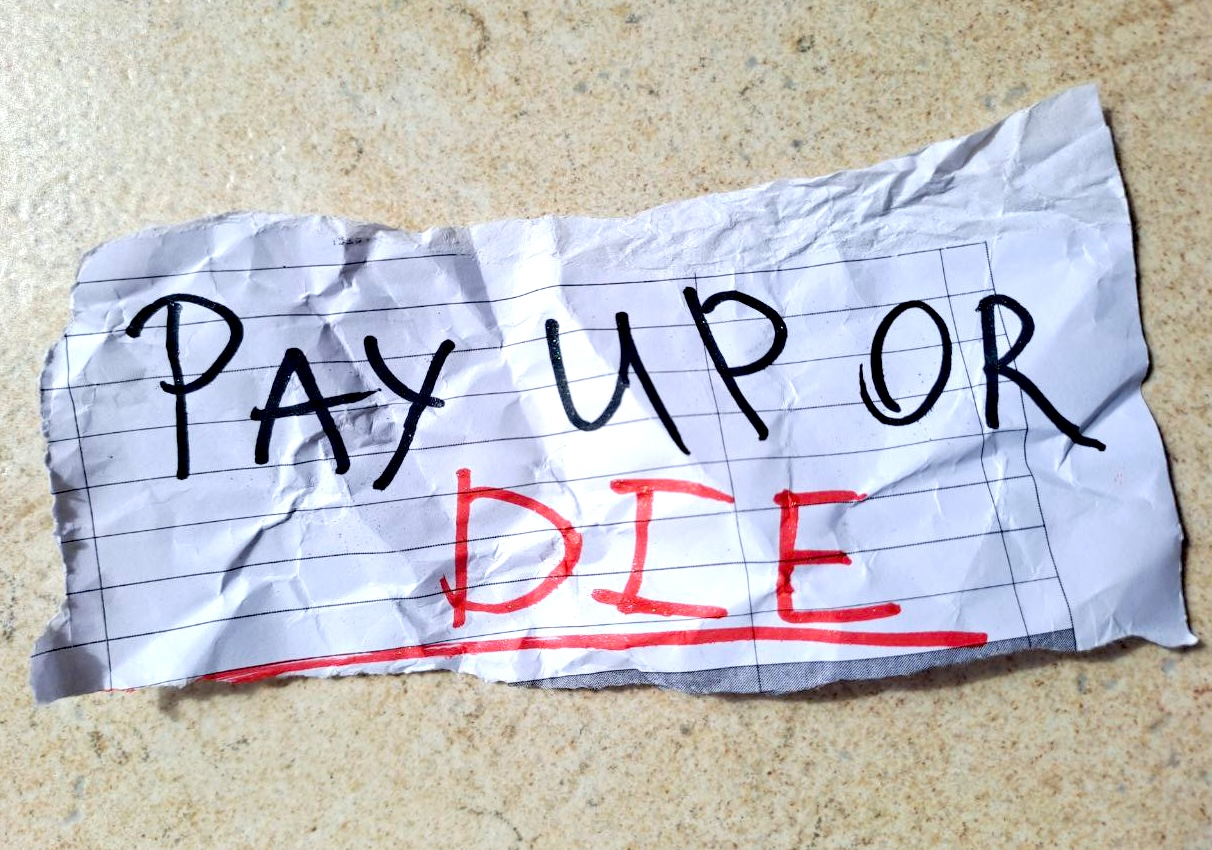 PAY UP OR
DIE